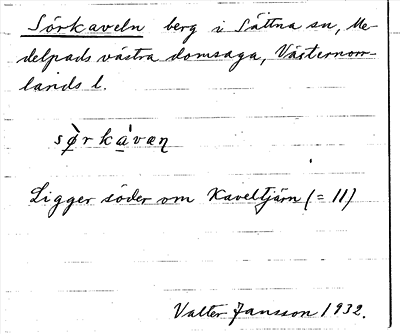 Sörkaveln berg i Sättna sn, Me-
delpads västra domsaga, Västernorr-
lands l.
sø̀rkàvæꞑ
Ligger söder om Kaveltjärn (= 11)
Valter Jansson 1932.